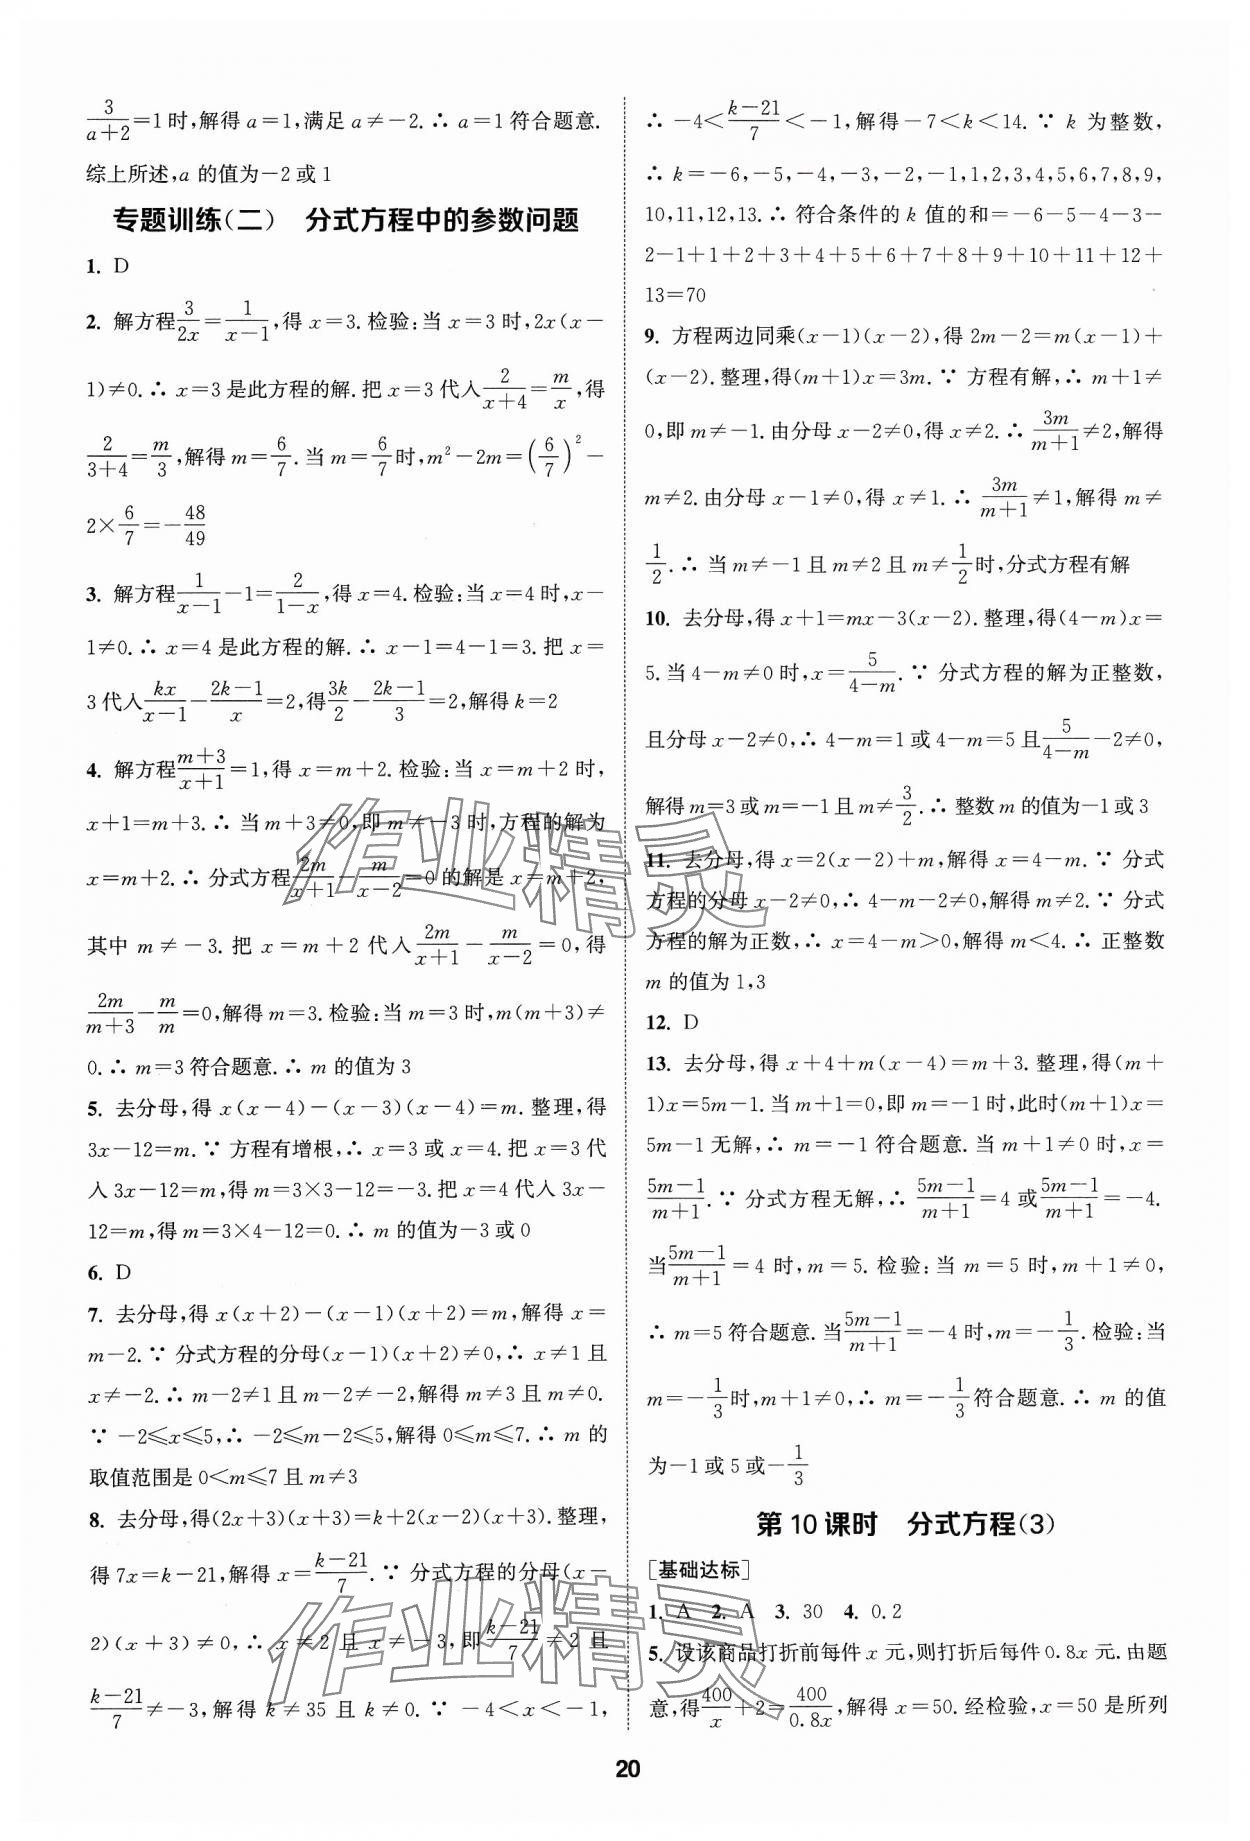 3/(a+2)=1时,解得 a=1,满足 a≠-2.∴ a=1 符合题意.
综上所述,a 的值为-2 或 1
专题训练(二) 分式方程中的参数问题
1. D
2. 解方程3/(2x)=1/(x-1),得 x=3.检验:当 x=3 时,2x(x-
1)≠0.∴ x=3 是此方程的解.把 x=3 代入2/(x+4)=m/x,得
2/(3+4)=m/3,解得 m=6/7.当 m=6/7时,m²-2m=(6/7)²-
2×6/7=-48/49
3. 解方程1/(x-1)-1=2/(1-x),得 x=4.检验:当 x=4 时,x-
1≠0.∴ x=4 是此方程的解.∴ x-1=4-1=3.把 x=
3 代入kx/(x-1)-(2k-1)/x=2,得3k/2-(2k-1)/3=2,解得 k=2
4. 解方程(m+3)/(x+1)=1,得 x=m+2.检验:当 x=m+2 时,
x+1=m+3.∴ 当 m+3≠0,即 m≠-3 时,方程的解为
x=m+2.∴ 分式方程2m/(x+1)-m/(x-2)=0 的解是 x=m+2,
其中 m≠-3.把 x=m+2 代入2m/(x+1)-m/(x-2)=0,得
2m/(m+3)-m/m=0,解得 m=3.检验:当 m=3 时,m(m+3)≠
0.∴ m=3 符合题意.∴ m 的值为 3
5. 去分母,得 x(x-4)-(x-3)(x-4)=m.整理,得
3x-12=m.∵ 方程有增根,∴ x=3 或 x=4.把 x=3 代
入 3x-12=m,得 m=3×3-12=-3.把 x=4 代入 3x-
12=m,得 m=3×4-12=0.∴ m 的值为-3 或 0
6. D
7. 去分母,得 x(x+2)-(x-1)(x+2)=m,解得 x=
m-2.∵ 分式方程的分母(x-1)(x+2)≠0,∴ x≠1 且
x≠-2.∴ m-2≠1 且 m-2≠-2,解得 m≠3 且 m≠0.
∵ -2≤x≤5,∴ -2≤m-2≤5,解得 0≤m≤7.∴ m 的
取值范围是 0<m≤7 且 m≠3
8. 去分母,得(2x+3)(x+3)=k+2(x-2)(x+3).整理,
得 7x=k-21,解得 x=(k-21)/7.∵ 分式方程的分母(x-
2)(x+3)≠0,∴ x≠2 且 x≠-3,即(k-21)/7≠2 且
(k-21)/7≠-3,解得 k≠35 且 k≠0.∵ -4<x<-1,
∴ -4<(k-21)/7<-1,解得-7<k<14.∵ k 为整数,
∴ k=-6,-5,-4,-3,-2,-1,1,2,3,4,5,6,7,8,9,
10,11,12,13.∴ 符合条件的 k 值的和=-6-5-4-3-
2-1+1+2+3+4+5+6+7+8+9+10+11+12+
13=70
9. 方程两边同乘(x-1)(x-2),得 2m-2=m(x-1)+
(x-2).整理,得(m+1)x=3m.∵ 方程有解,∴ m+1≠
0,即 m≠-1.由分母 x-2≠0,得 x≠2.∴ 3m/(m+1)≠2,解得
m≠2.由分母 x-1≠0,得 x≠1.∴ 3m/(m+1)≠1,解得 m≠
1/2.∴ 当 m≠-1 且 m≠2 且 m≠1/2时,分式方程有解
10. 去分母,得 x+1=mx-3(x-2).整理,得(4-m)x=
5.当 4-m≠0 时,x=5/(4-m).∵ 分式方程的解为正整数,
且分母 x-2≠0,∴ 4-m=1 或 4-m=5 且5/(4-m)-2≠0,
解得 m=3 或 m=-1 且 m≠3/2.∴ 整数 m 的值为-1 或 3
11. 去分母,得 x=2(x-2)+m,解得 x=4-m.∵ 分式
方程的分母 x-2≠0,∴ 4-m-2≠0,解得 m≠2.∵ 分式
方程的解为正数,∴ x=4-m>0,解得 m<4.∴ 正整数
m 的值为 1,3
12. D
13. 去分母,得 x+4+m(x-4)=m+3.整理,得(m+
1)x=5m-1.当 m+1=0,即 m=-1 时,此时(m+1)x=
5m-1 无解,∴ m=-1 符合题意.当 m+1≠0 时,x=
(5m-1)/(m+1).∵ 分式方程无解,∴ (5m-1)/(m+1)=4 或(5m-1)/(m+1)=-4.
当(5m-1)/(m+1)=4 时,m=5.检验:当 m=5 时,m+1≠0,
∴ m=5 符合题意.当(5m-1)/(m+1)=-4 时,m=-1/3.检验:当
m=-1/3时,m+1≠0,∴ m=-1/3符合题意.∴ m 的值
为-1 或 5 或-1/3
第 10 课时 分式方程(3)
[基础达标]
1. A 2. A 3. 30 4. 0.2
5. 设该商品打折前每件 x 元,则打折后每件 0.8x 元.由题
意,得400/x+2=400/(0.8x),解得 x=50.经检验,x=50 是所列
20
作业精灵
作业精灵